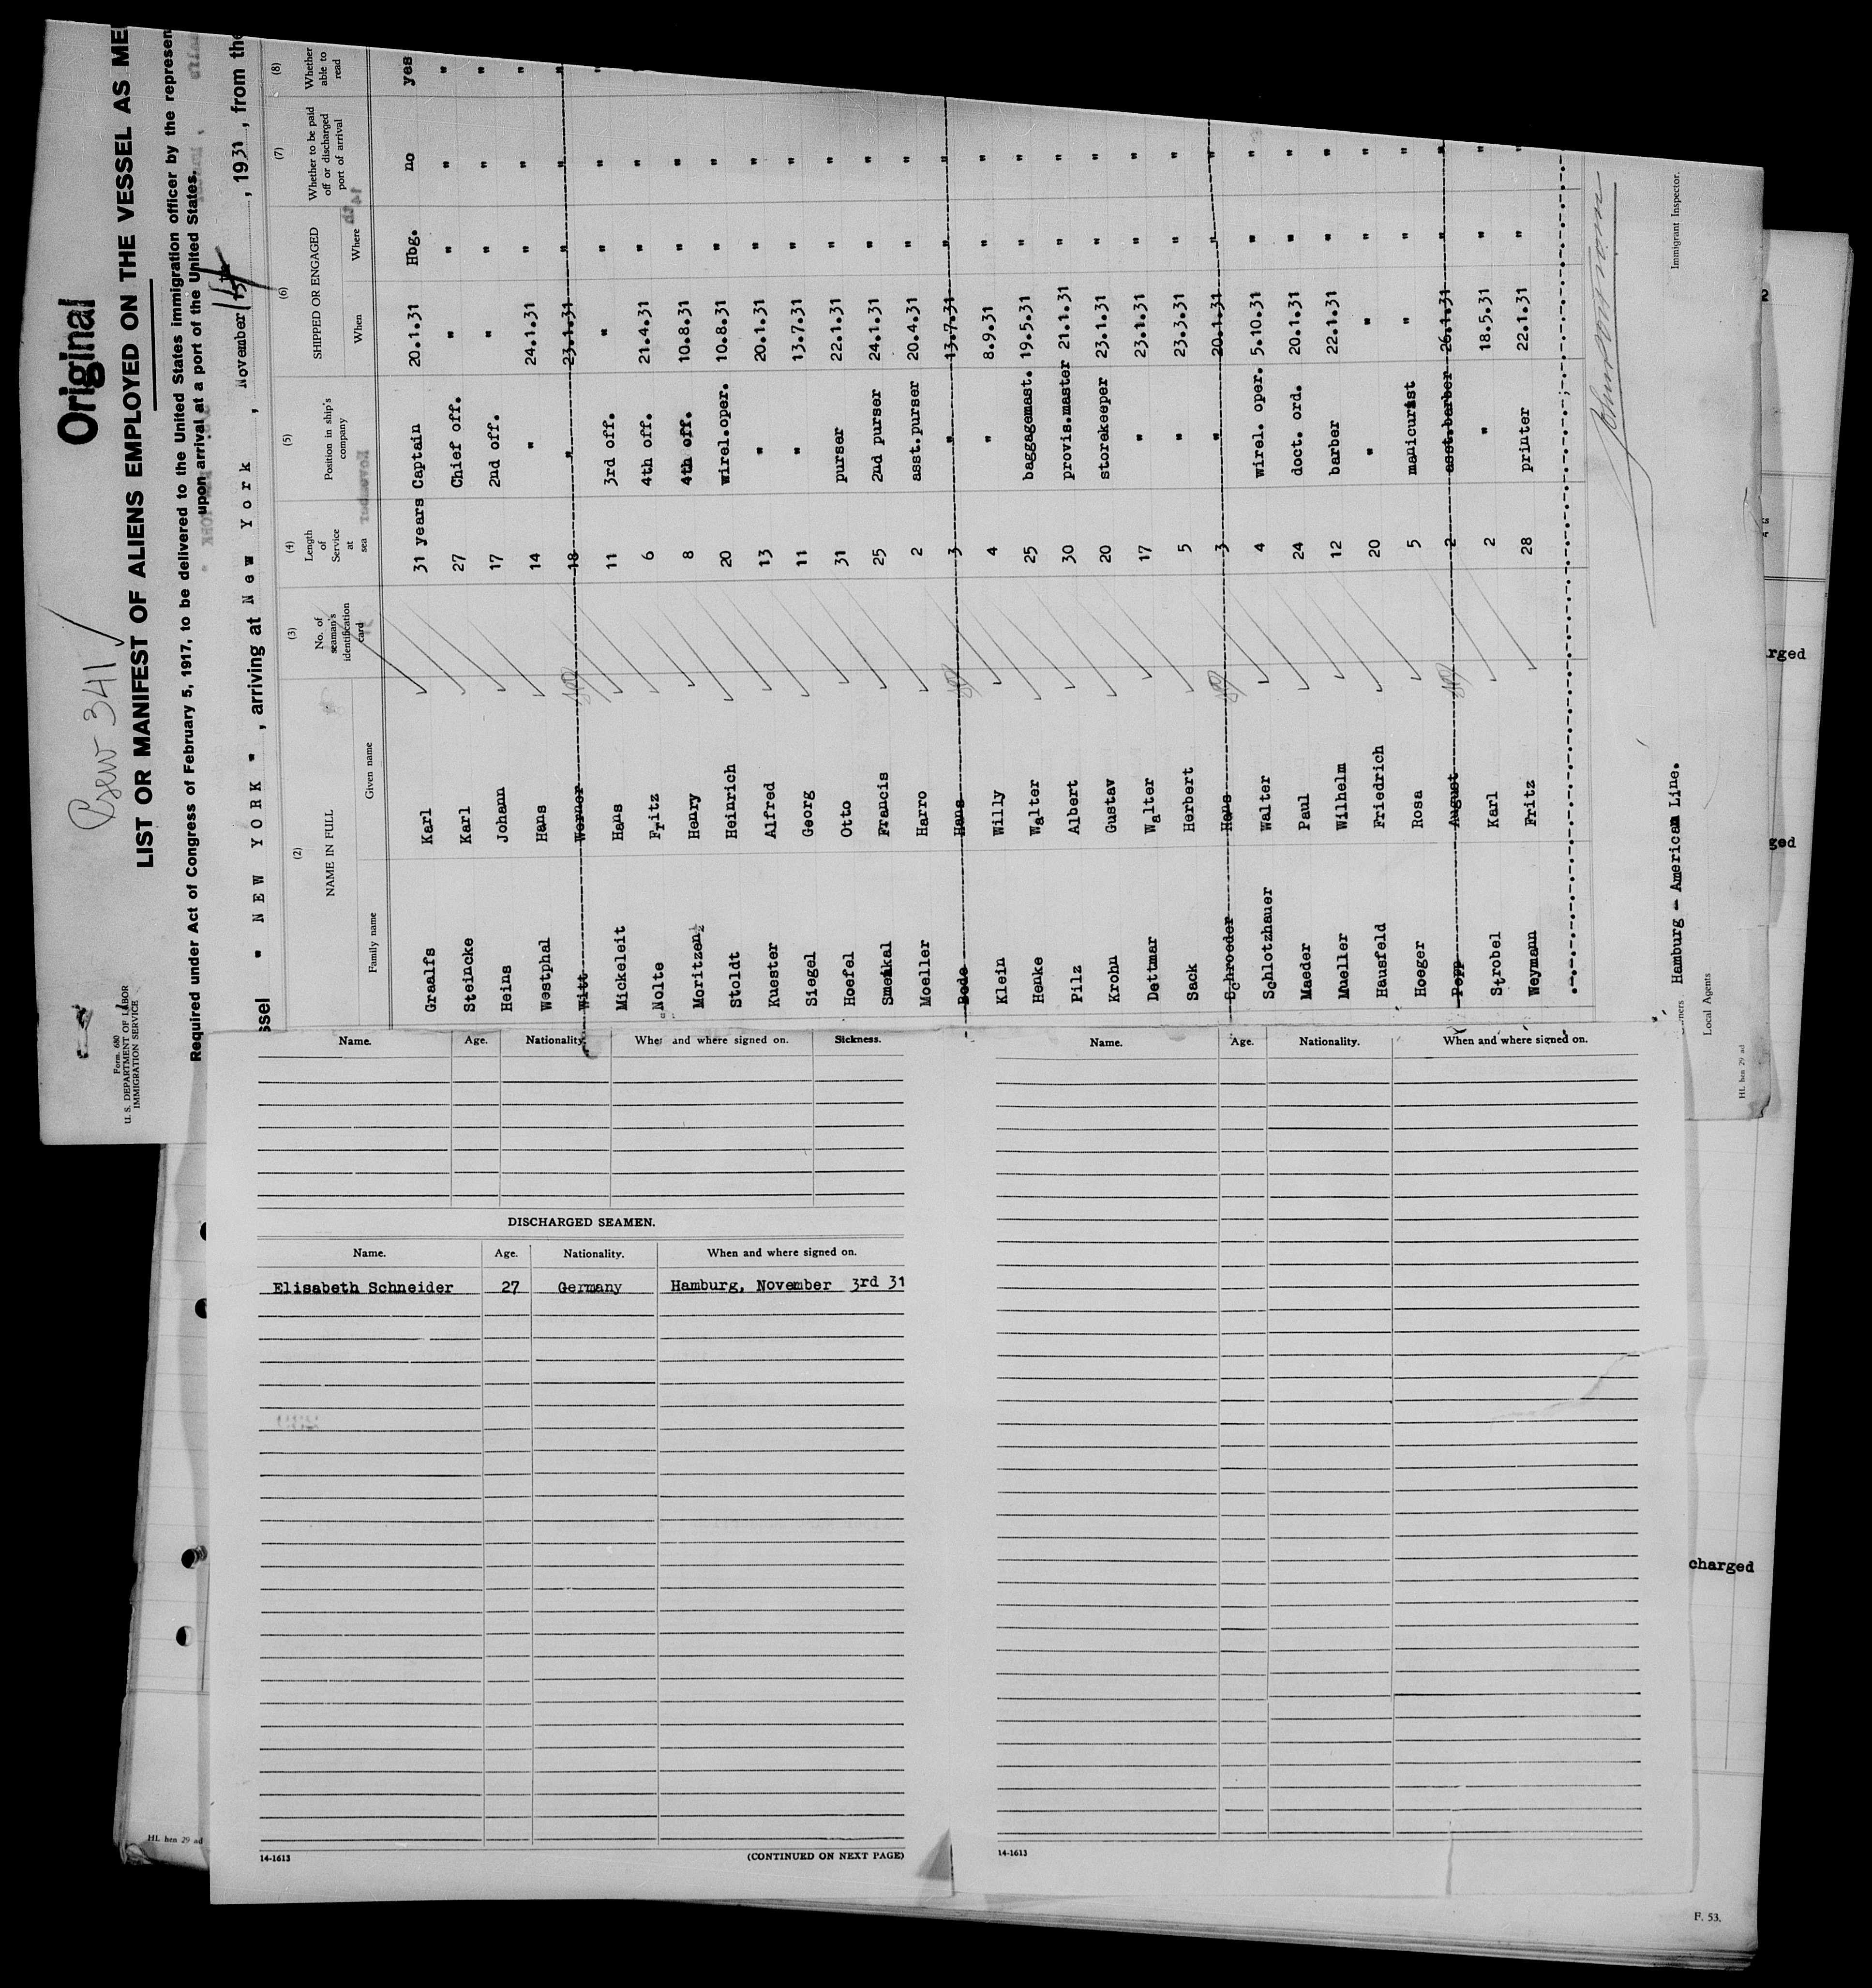 Original
Crew 341
Form 680
U. S. DEPARTMENT OF LABOR
IMMIGRATION SERVICE
LIST OR MANIFEST OF ALIENS EMPLOYED ON THE VESSEL AS ME
Required under Act of Congress of February 5, 1917, to be delivered to the United States immigration officer by the represen
upon arrival at a port of the United States.
ssel " NEW YORK ", arriving at New York, November 14, 1931, from the
(2) (3) (4) (5) (6) (7) (8)
NAME IN FULL No. of seaman's identification card Length of Service at sea Position in ship's company SHIPPED OR ENGAGED Whether to be paid off or discharged port of arrival Whether able to read
Family name Given name When Where
Graalfs Karl 31 years Captain 20.1.31 Hbg. no yes
Steincke Karl 27 Chief off. " " " "
Heins Johann 17 2nd off. " " " "
Westphal Hans 14 " 24.1.31 " " "
Witt Werner 18 " 23.1.31 " " "
Mickeleit Hans 11 3rd off. " " " "
Nolte Fritz 6 4th off. 21.4.31 " "
Moritzen Henry 8 4th off. 10.8.31 " "
Stoldt Heinrich 20 wirel.oper. 10.8.31 " "
Kuester Alfred 13 " 20.1.31 " "
Siegel Georg 11 " 13.7.31 " "
Hoefel Otto 31 purser 22.1.31 " "
Smeikal Francis 25 2nd purser 24.1.31 " "
Moeller Harro 2 asst.purser 20.4.31 " "
Bede Hans 3 " 13.7.31 " "
Klein Willy 4 " 8.9.31 " "
Henke Walter 25 baggagemast. 19.5.31 " "
Pilz Albert 30 provis.master 21.1.31 " "
Krohn Gustav 20 storekeeper 23.1.31 " "
Dettmar Walter 17 " 23.1.31 " "
Sack Herbert 5 " 23.3.31 " "
Schroeder Hans 3 " 20.1.31 " "
Schlotzhauer Walter 4 wirel. oper. 5.10.31 " "
Maeder Paul 24 doct. ord. 20.1.31 " "
Mueller Wilhelm 12 barber 22.1.31 " "
Hausfeld Friedrich 20 " " " "
Hoeger Rosa 5 manicurist " " "
Popp August 2 asst.barber 26.1.31 " "
Strobel Karl 2 " 18.5.31 " "
Weymann Fritz 28 printer 22.1.31 " "
Immigrant Inspector.
Hamburg - American Line.
Local Agents
HL hen 29 ad
Name. Age. Nationality. and where signed on. Sickness.
DISCHARGED SEAMEN.
Name. Age. Nationality. When and where signed on.
Elisabeth Schneider 27 Germany Hamburg, November 3rd 31
14-1613 (CONTINUED ON NEXT PAGE)
Name. Age. Nationality. When and where signed on.
14-1613
rged
ged
charged
HL hen 29 ad
F. 53.